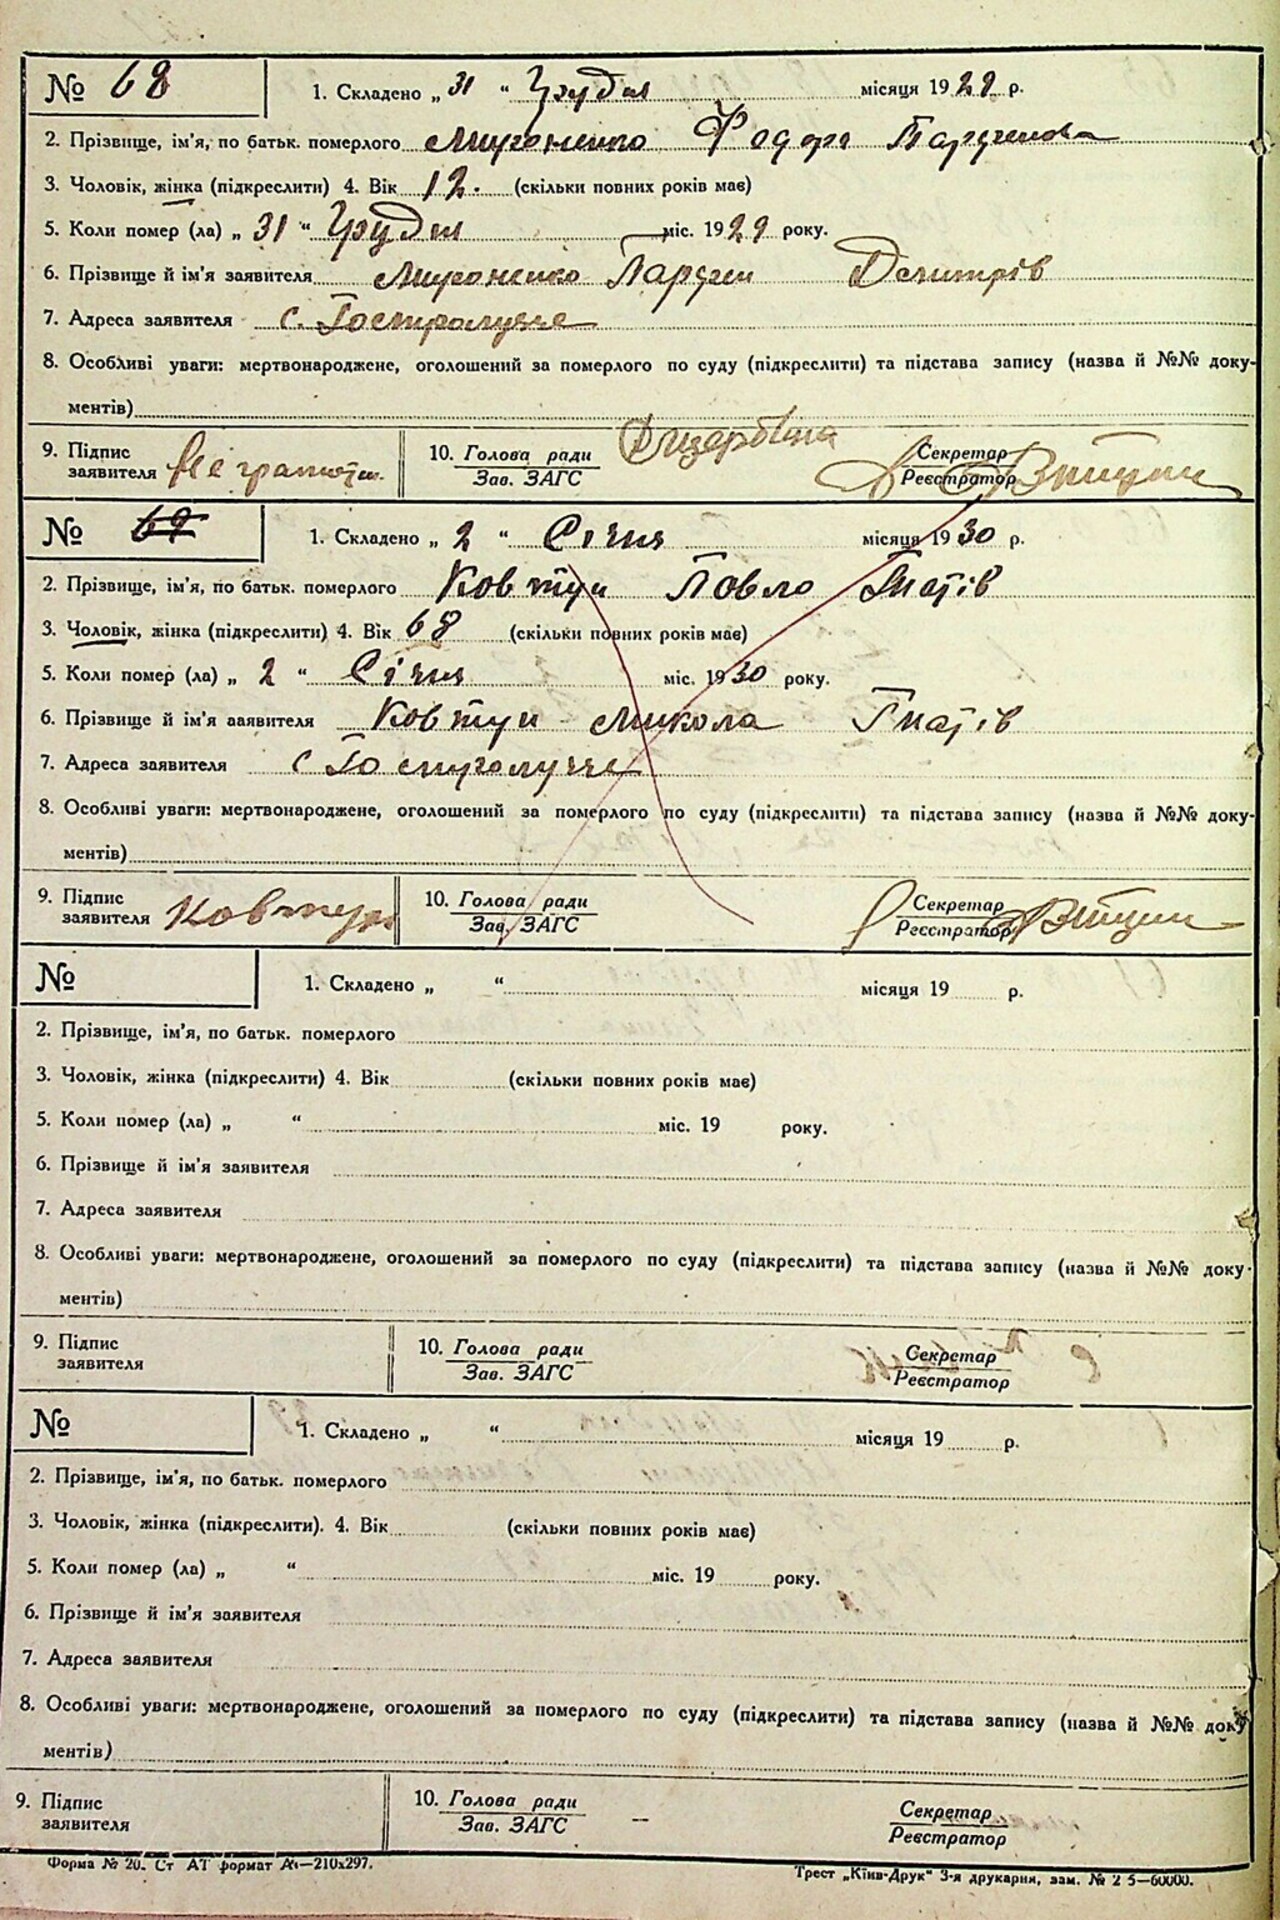 № 68 1. Складено „ 31 “ Грудня місяця 1929 р.
2. Прізвище, ім'я, по батьк. померлого Мироненко Федора
3. Чоловік, жінка (підкреслити) 4. Вік 12. (скільки повних років має)
5. Коли помер (ла) „ 31 “ Грудня міс. 1929 року.
6. Прізвище й ім'я заявителя Мироненко
7. Адреса заявителя с. Гостролуччє
8. Особливі уваги: мертвонароджене, оголошений за померлого по суду (підкреслити) та підстава запису (назва й №№ доку-
ментів)
9. Підпис 10. Голова ради Секретар
заявителя Зав. ЗАГС Реєстратор
№ 69 1. Складено „ 2 “ Січня місяця 1930 р.
2. Прізвище, ім'я, по батьк. померлого Ковтун Повло Гнатів
3. Чоловік, жінка (підкреслити) 4. Вік 68 (скільки повних років має)
5. Коли помер (ла) „ 2 “ Січня міс. 1930 року.
6. Прізвище й ім'я заявителя Ковтун Микола Гнатів
7. Адреса заявителя с Гостролуччє
8. Особливі уваги: мертвонароджене, оголошений за померлого по суду (підкреслити) та підстава запису (назва й №№ доку-
ментів)
9. Підпис 10. Голова ради Секретар
заявителя Ковтун Зав. ЗАГС Реєстратор
№ 1. Складено „ “ місяця 19 р.
2. Прізвище, ім'я, по батьк. померлого
3. Чоловік, жінка (підкреслити) 4. Вік (скільки повних років має)
5. Коли помер (ла) „ “ міс. 19 року.
6. Прізвище й ім'я заявителя
7. Адреса заявителя
8. Особливі уваги: мертвонароджене, оголошений за померлого по суду (підкреслити) та підстава запису (назва й №№ доку-
ментів)
9. Підпис 10. Голова ради Секретар
заявителя Зав. ЗАГС Реєстратор
№ 1. Складено „ “ місяця 19 р.
2. Прізвище, ім'я, по батьк. померлого
3. Чоловік, жінка (підкреслити). 4. Вік (скільки повних років має)
5. Коли помер (ла) „ “ міс. 19 року.
6. Прізвище й ім'я заявителя
7. Адреса заявителя
8. Особливі уваги: мертвонароджене, оголошений за померлого по суду (підкреслити) та підстава запису (назва й №№ доку-
ментів)
9. Підпис 10. Голова ради Секретар
заявителя Зав. ЗАГС Реєстратор
Форма № 20. Ст АТ формат А4—210x297. Трест „Київ-Друк“ 3-я друкарня, зам. № 2 5—60000.